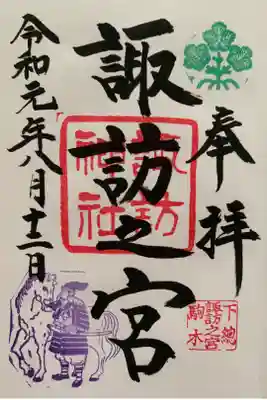 奉拝
諏訪之宮
諏訪
神社
令和元年八月十二日
下總
諏訪之宮
駒木